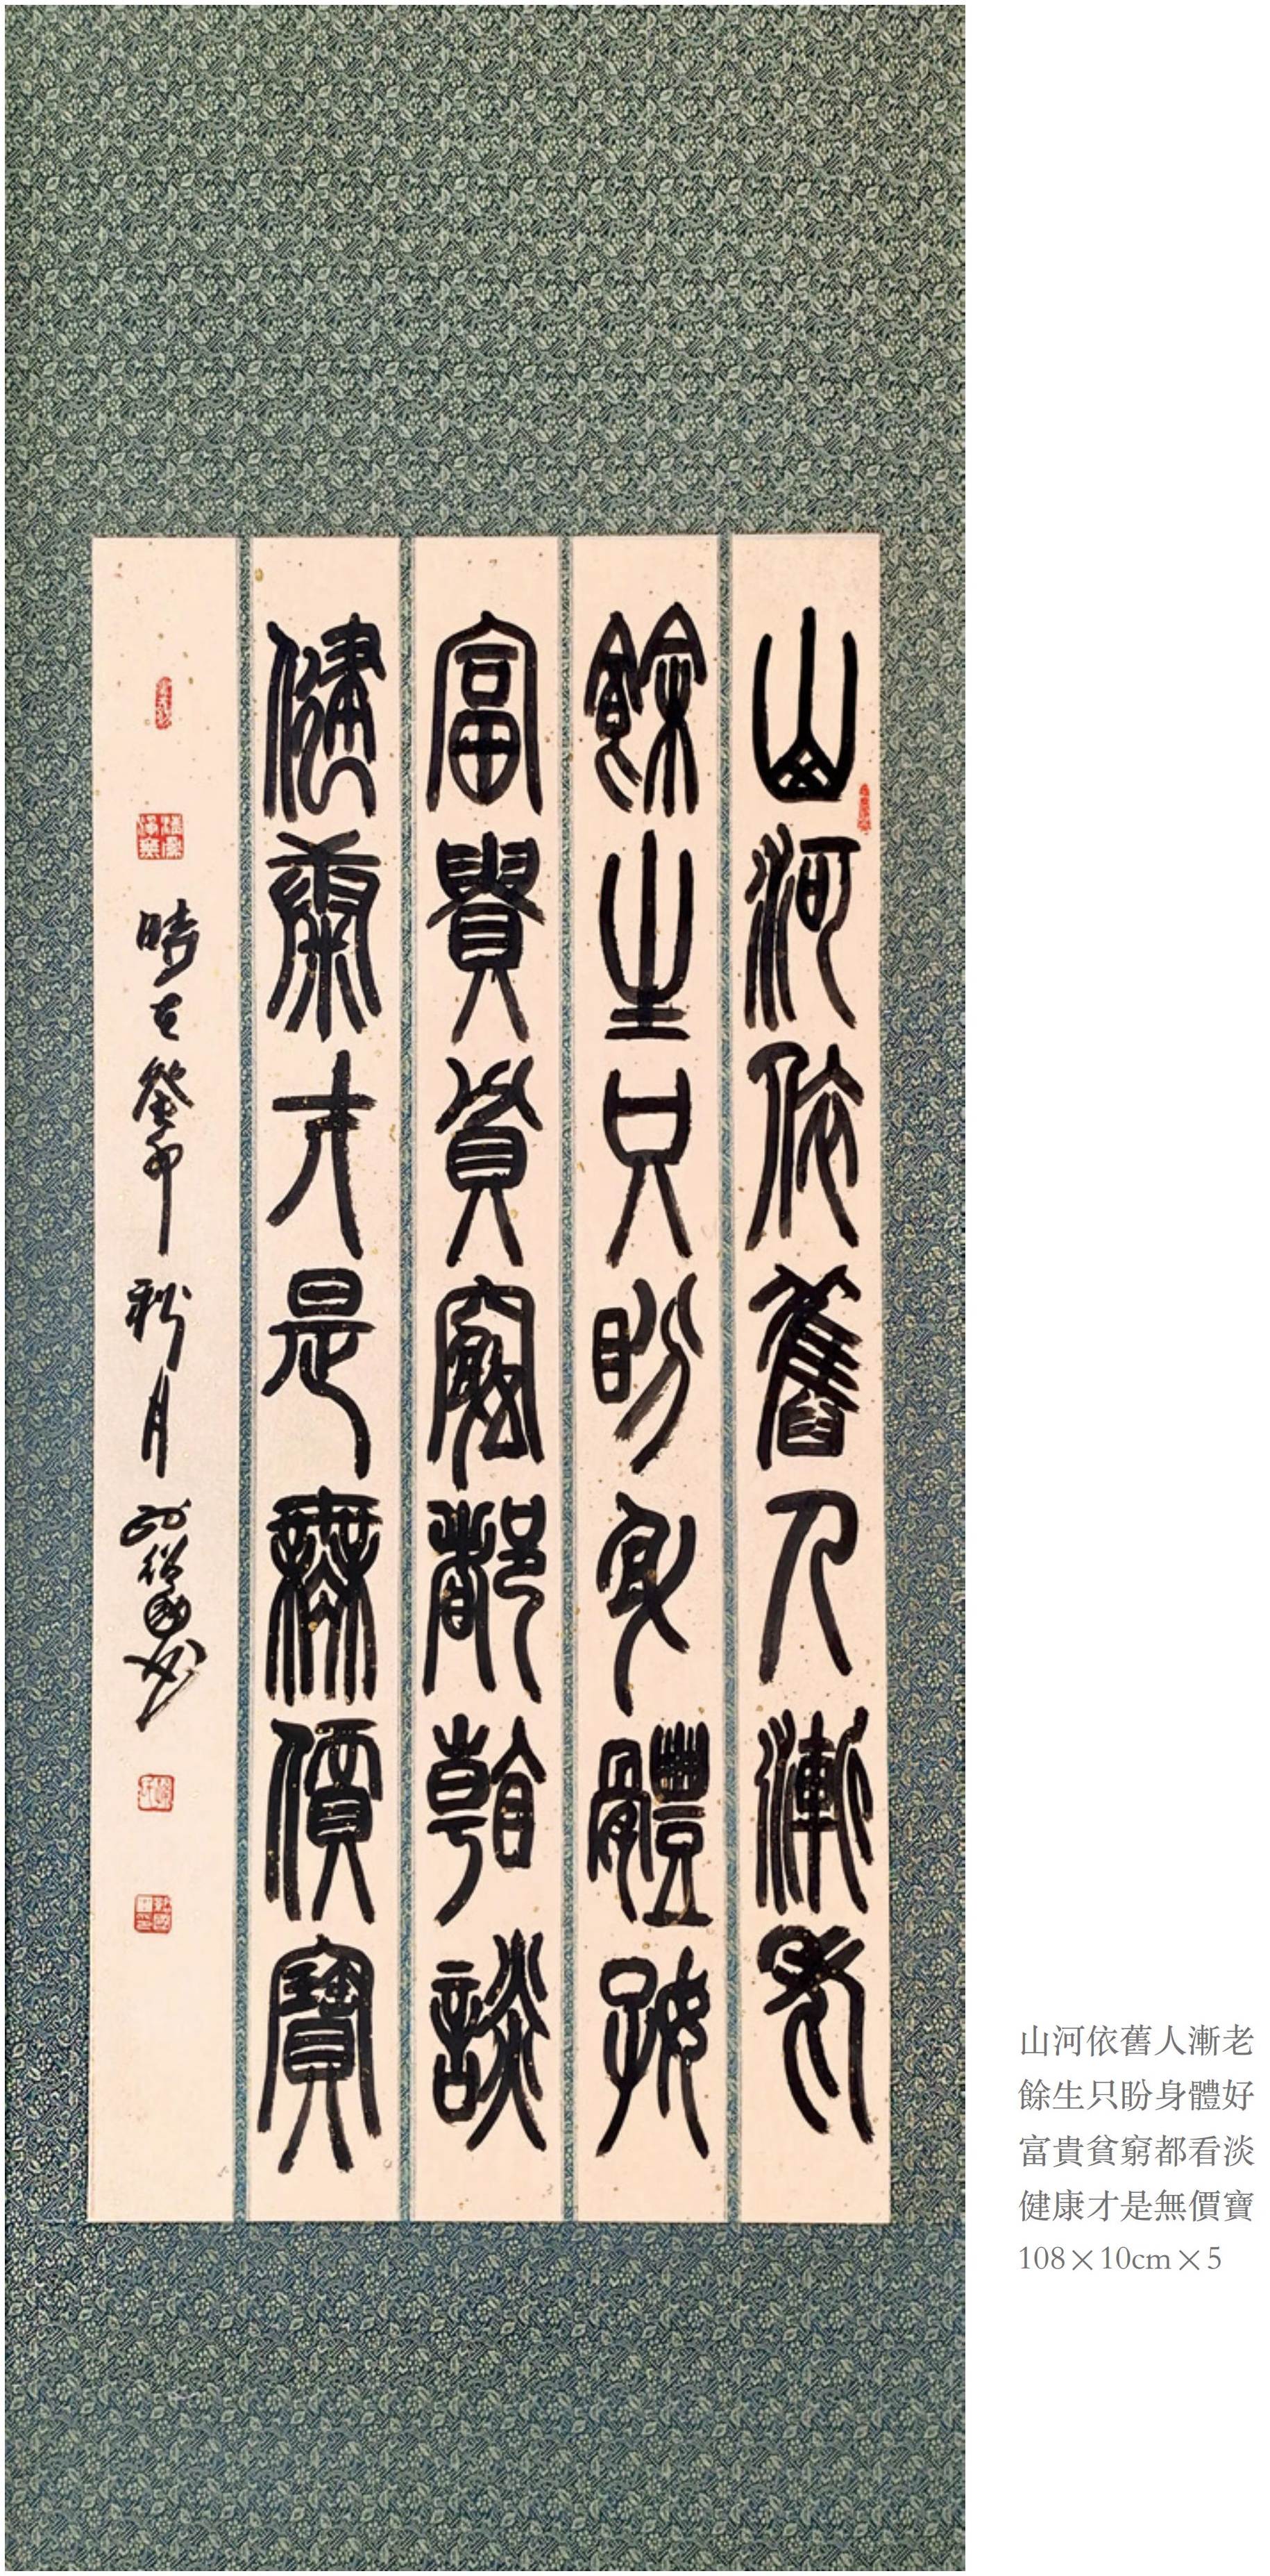 山河依舊人漸老
餘生只盼身體好
富貴貧窮都看淡
健康才是無價寶
時在癸卯秋月
山河依舊人漸老
餘生只盼身體好
富貴貧窮都看淡
健康才是無價寶
108×10cm×5